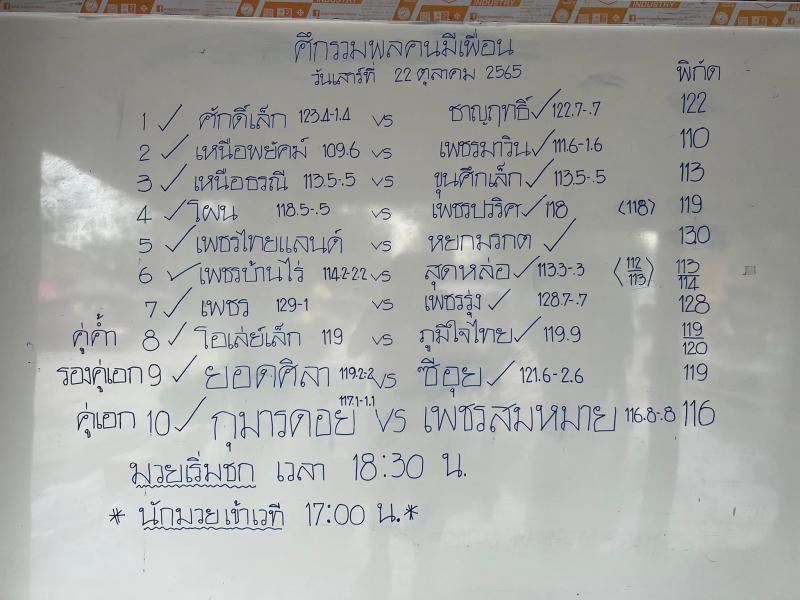 INDUSTRY
INDUSTRY
INDUSTRY
ศึกรวมพลคนมีเพื่อน
วันเสาร์ที่ 22 ตุลาคม 2565
พิกัด
1 ✓ ศักดิ์เล็ก 123.4-1.4 vs ชาญฤทธิ์ ✓ 122.7-.7 122
2 ✓ เหนือพยัคม์ 109.6 vs เพชรมาวิน ✓ 111.6-1.6 110
3 ✓ เหนือธรณี 113.5-.5 vs ขุนศึกเล็ก ✓ 113.5-.5 113
4 ✓ โผน 118.5-.5 vs เพชรปวริศ ✓ 118 <118> 119
5 ✓ เพชรไทยแลนด์ vs หยกมรกต ✓ 130
6 ✓ เพชรบ้านไร่ 114.2-2.2 vs สุดหล่อ ✓ 113.3-.3 <112/113> 113/114
7 ✓ เพชร 129-1 vs เพชรรุ่ง ✓ 128.7-.7 128
คู่ค้ำ 8 ✓ โอเล่ย์เล็ก 119 vs ภูมิใจไทย ✓ 119.9 119/120
รองคู่เอก 9 ✓ ยอดศิลา 119.2-2 vs ซีอุย ✓ 121.6-2.6 119
คู่เอก 10 ✓ กุมารดอย 117.1-1.1 vs เพชรสมหมาย 116.8-.8 116
มวยเริ่มชก เวลา 18:30 น.
* นักมวยเข้าเวที 17:00 น.*